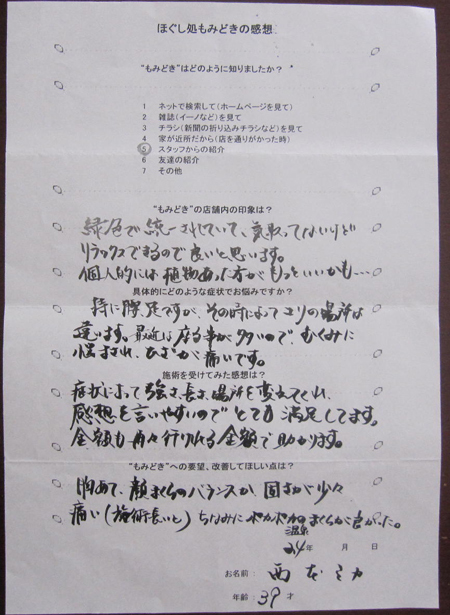 ほぐし処もみどきの感想
"もみどき"はどのように知りましたか?
1 ネットで検索して(ホームページを見て)
2 雑誌(イーノなど)を見て
3 チラシ(新聞の折り込みチラシなど)を見て
4 家が近所だから(店を通りがかった時)
5 スタッフからの紹介
6 友達の紹介
7 その他
"もみどき"の店舗内の印象は?
緑色で統一されていて、気取ってないけど
リラックスできるので良いと思います。
個人的には植物あった方がもっといいかも…
具体的にどのような症状でお悩みですか?
特に腰、足ですが、その時によってコリの場所は
違います。最近は座る事が多いので、むくみに
悩まされ、ひざが痛いです。
施術を受けてみた感想は?
症状によって強さ、長さ、場所を変えてくれ、
感想を言いやすいのでとても満足してます。
金額も再々行かれる金額で助かります。
"もみどき"への要望、改善してほしい点は?
胸あて、顔まくらのバランスか、固さが少々
痛い(施術長いと)ちなみにポカポカ温泉のまくらが良かった。
24年 月 日
お名前: 西
年齢: 39 才